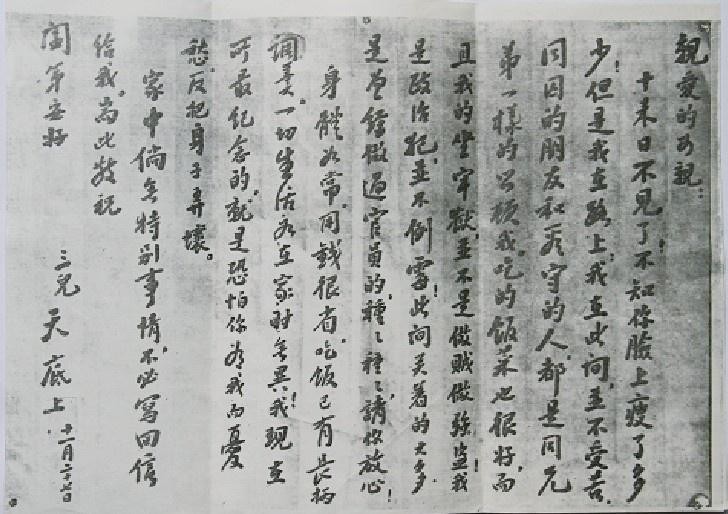 親愛的母親：
十来日不見了！不知你臉上瘦了多
少！但是我在路上，我在此间，並不受苦，
同囚的朋友和看守的人，都是同兄
弟一樣的照顧我。吃的飯菜也很好，而
且我的坐牢獄，並不是做賊做強盗！我
是政治犯，並不倒霉！此间关着的大多
是曾經做過官員的，種々種々，請你放心！
身體如常，用錢很省，吃飯已有長柄
調羹，一切生活如在家时無異！我現在
可最紀念的，就是恐怕你為我而憂
愁，反把身子弄壞。
家中倘無特别事情，不必寫回信
给我。耑此敬祝
闔第安好
三兒 天底上 十一月二十七日